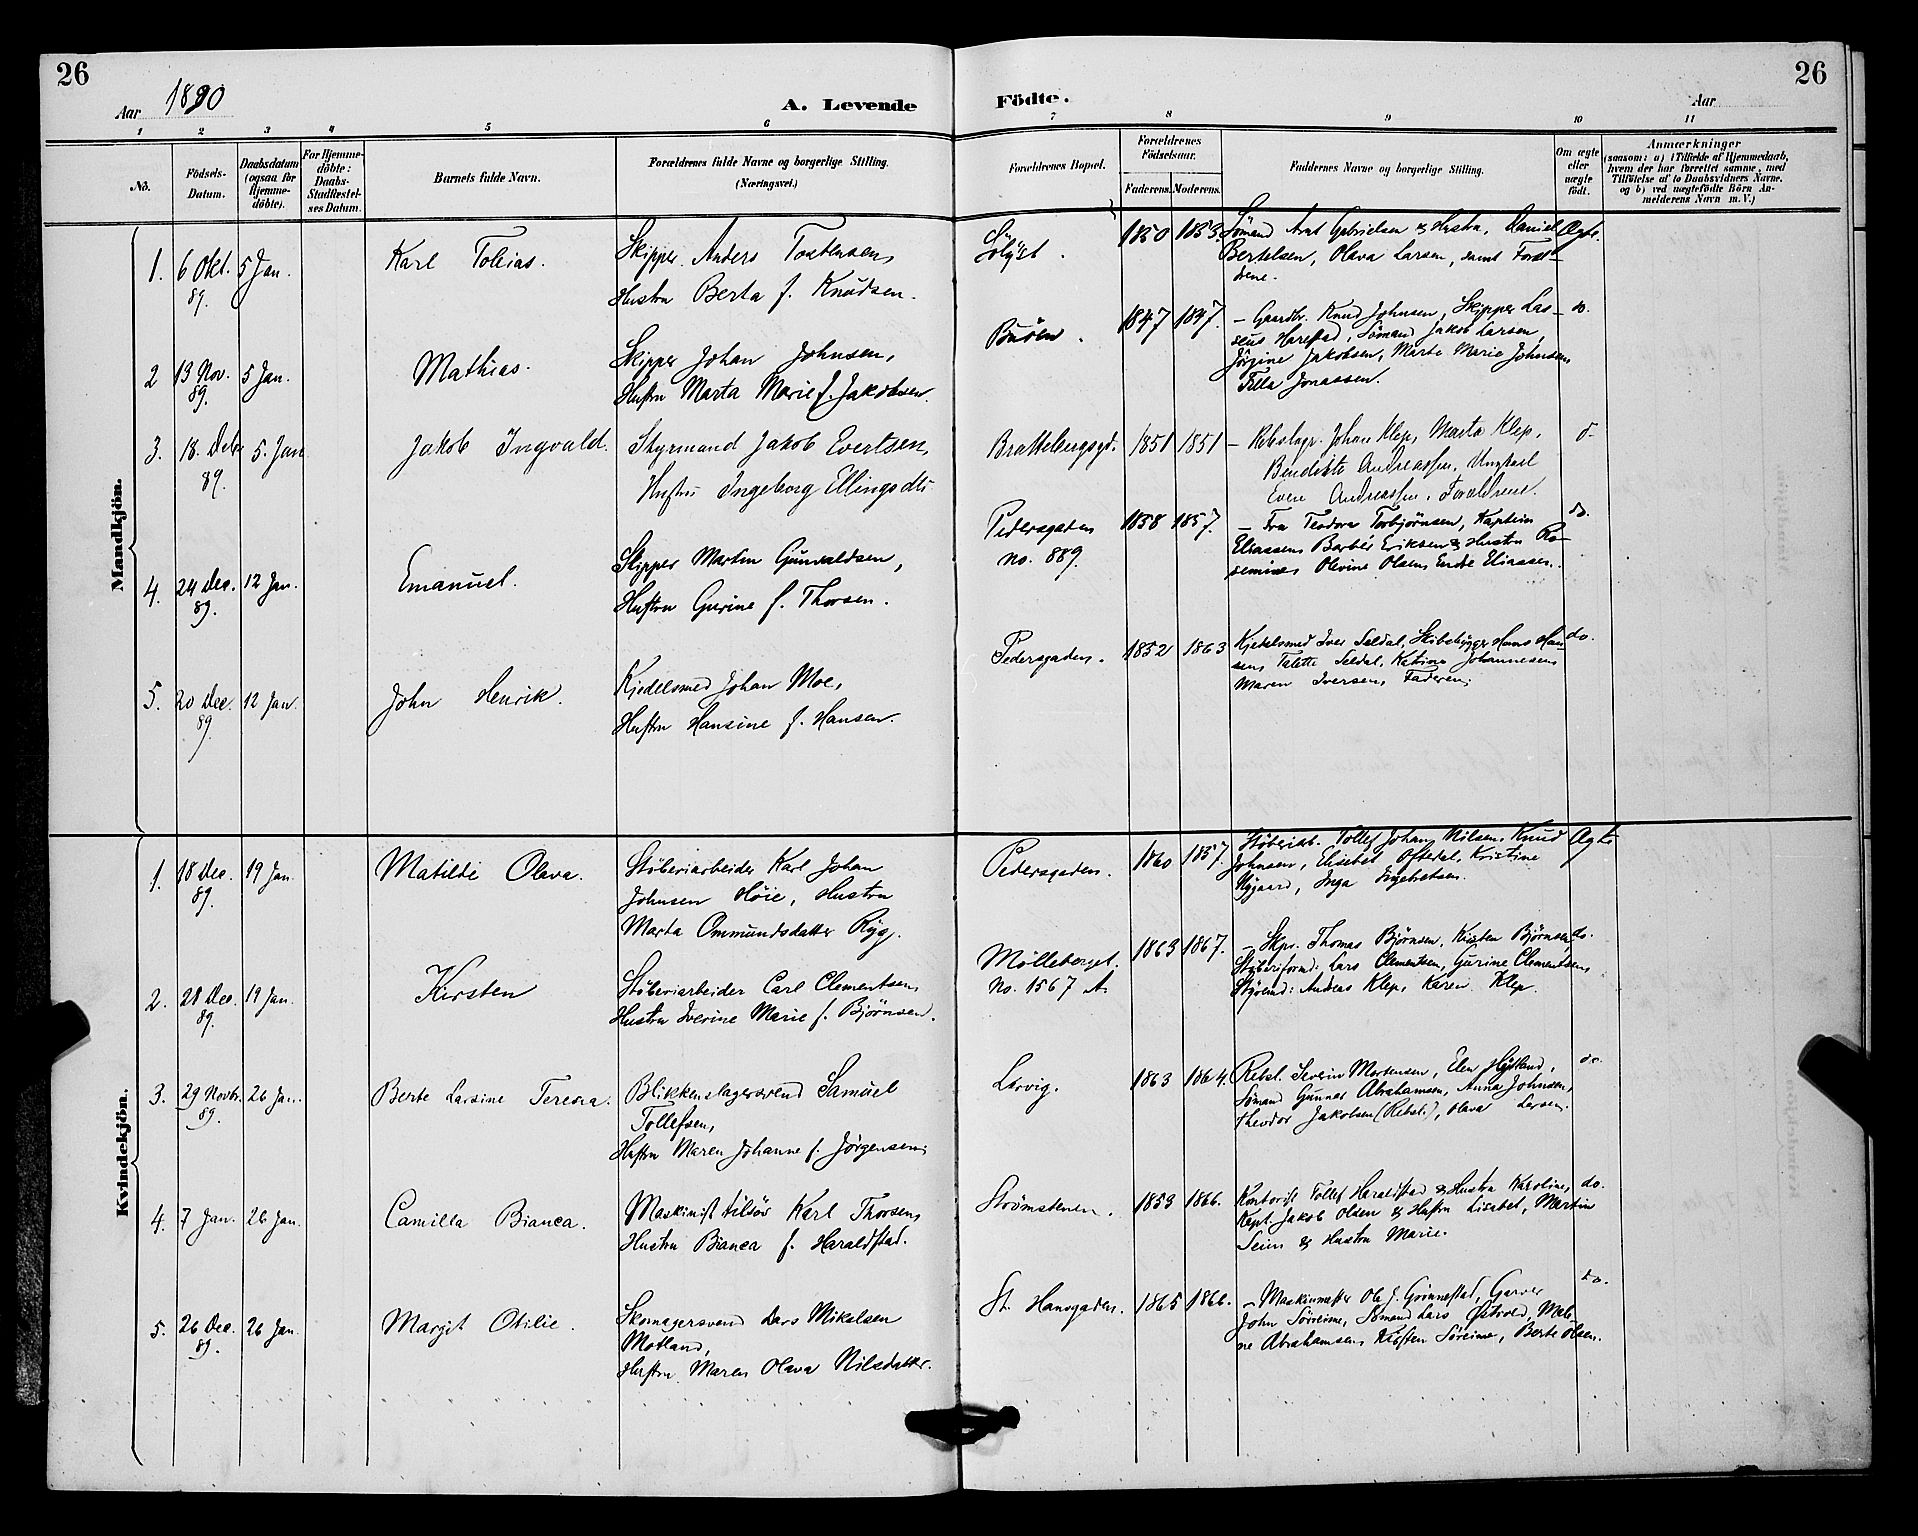 26
Aar 1890
A. Levende
Födte.
Aar
26
1 2 3 4 5 6 7 8 9 10 11
No.
Födsels-Datum.
Daabsdatum (ogsaa for Hjemme-döbte).
For Hjemme-döbte: Daabs-Stadfæstel-ses Datum.
Barnets fulde Navn.
Forældrenes fulde Navne og borgerlige Stilling.
(Næringsvei.)
Forældrenes Bopæl.
Forældrenes Födselsaar.
Faderens. Moderens.
Faddernes Navne og borgerlige Stilling.
Om ægte eller uægte födt.
Anmærkninger
(saasom: a) i Tilfælde af Hjemmedaab,
hvem der har forrettet samme, med
Tilföielse af to Daabsvidners Navne.
og b) ved uægtefödte Börn An-
melderens Navn m. V.)
Mandkjön.
1. 6 Okt. 89. 5 Jan.
Karl Tobias.
Skipper Anders Tostensen,
Hustru Berta f. Knudsen.
Sølyst.
1850 1853.
Sømand Arnt Gabrielsen & Hustru, Daniel
Bertelsen, Olava Larsen, samt Foræl-
drene.
Ægte.
2 13 Nov. 89. 5 Jan.
Mathias.
Skipper Johan Johnsen,
Hustru Marta Marie f. Jakobsen.
Buøen.
1847 1847.
– Gaardbr. Knud Johnsen, Skipper Las-
seus Harestad, Sømand Jakob Larsen,
Jørgine Jakobsen, Marte Marie Johnsen,
Tilla Jonassen.
do.
3. 18. Debr 89. 5. Jan
Jakob Ingvald.
Styrmand Jakob Evertsen,
Hustru Ingeborg Ellingsdtr
Brattebergsgd.
1851 1851
– Rebslagr. Johan Klep, Marta Klep,
Bendikte Andreassen, Ungkarl
Even Andreassen, Forældrene.
d–
4. 24 Dec. 89. 12 Jan.
Emanuel.
Skipper Martin Gunvaldsen,
Hustru Gurine f. Thorsen.
Pedersgaden
no. 889.
1858 1857.
– Fru Teodora Torbjørnsen, Kaptein
Eliassen, Barbér Eriksen & Hustru Ro-
semine, Olevine Olsen, Endre Eliassen.
do.
5. 20 Dec. 89 12 Jan.
John Henrik.
Kjedelsmed Johan Moe,
Hustru Hansine f. Hansen.
Pedersgaden.
1852 1863
Kjedelsmed Iver Seldal, Skibsbygger Hans Han-
sen, Talette Seldal, Katrine Johannesen
Maren Iversen, Faderen.
do.
Kvindekjön.
1. 18 Dec. 89. 19 Jan.
Matilde Olava.
Støberiarbeider Karl Johan
Johnsen Høie, Hustru
Marta Ommundsdatter Rygg.
Pedersgaden.
1860 1857.
Støberiarb. Tollef Johan Nilsen, Knud
Johnsen, Elisabet Oftedal, Kristine
Nygaard, Inga Ingebretsen.
Ægte
2. 28 Dec. 89. 19 Jan.
Kirsten
Støberiarbeider Carl Clementsen,
Hustru Iverine Marie f. Bjørnsen.
Mølleberget.
No. 1567 A.
1863 1867.
– Skpr. Thomas Bjørnsen, Kirsten Bjørnsen,
Støberiformd. Lars Clementsen, Gurine Clementsen,
Styrmd: Andreas Klep, Karen Klep.
do.
3. 29 Novbr. 89. 26 Jan.
Berte Larsine Teresia.
Blikkenslagersvend Samuel
Tollefsen,
Hustru Maren Johanne f. Jørgensen.
Lervig.
1863 1864.
Rebsl. Severin Mortensen, Elen Høiland,
Sømand Gunnar Abrahamsen, Anna Johnsen,
Theodor Jakobsen (Rebsl.), Olava Larsen.
do.
4. 7 Jan. 26 Jan.
Camilla Bianca.
Maskinist tilsøs Karl Thorsen,
Hustru Bianca f. Haraldstad.
Strømstenen.
1859 1866.
Kontorist Tollef Haraldstad & Hustru Karoline,
Kapt. Jakob Olsen & Hustru Lisabet, Martin
Seim & Hustru Marie.
do.
5. 26 Dec. 89. 26 Jan.
Margit Otilie.
Skomagersvend Lars Mikalsen
Motland,
Hustru Maren Olava Nilsdatter.
St. Hansgaden.
1865 1866.
– Maskinmester Ole J. Grønnestad, Garver
John Sørreime, Sømand Lars Østvold, Male-
ne Abrahamsen, Kirsten Søreime, Berte Olsen.
do.